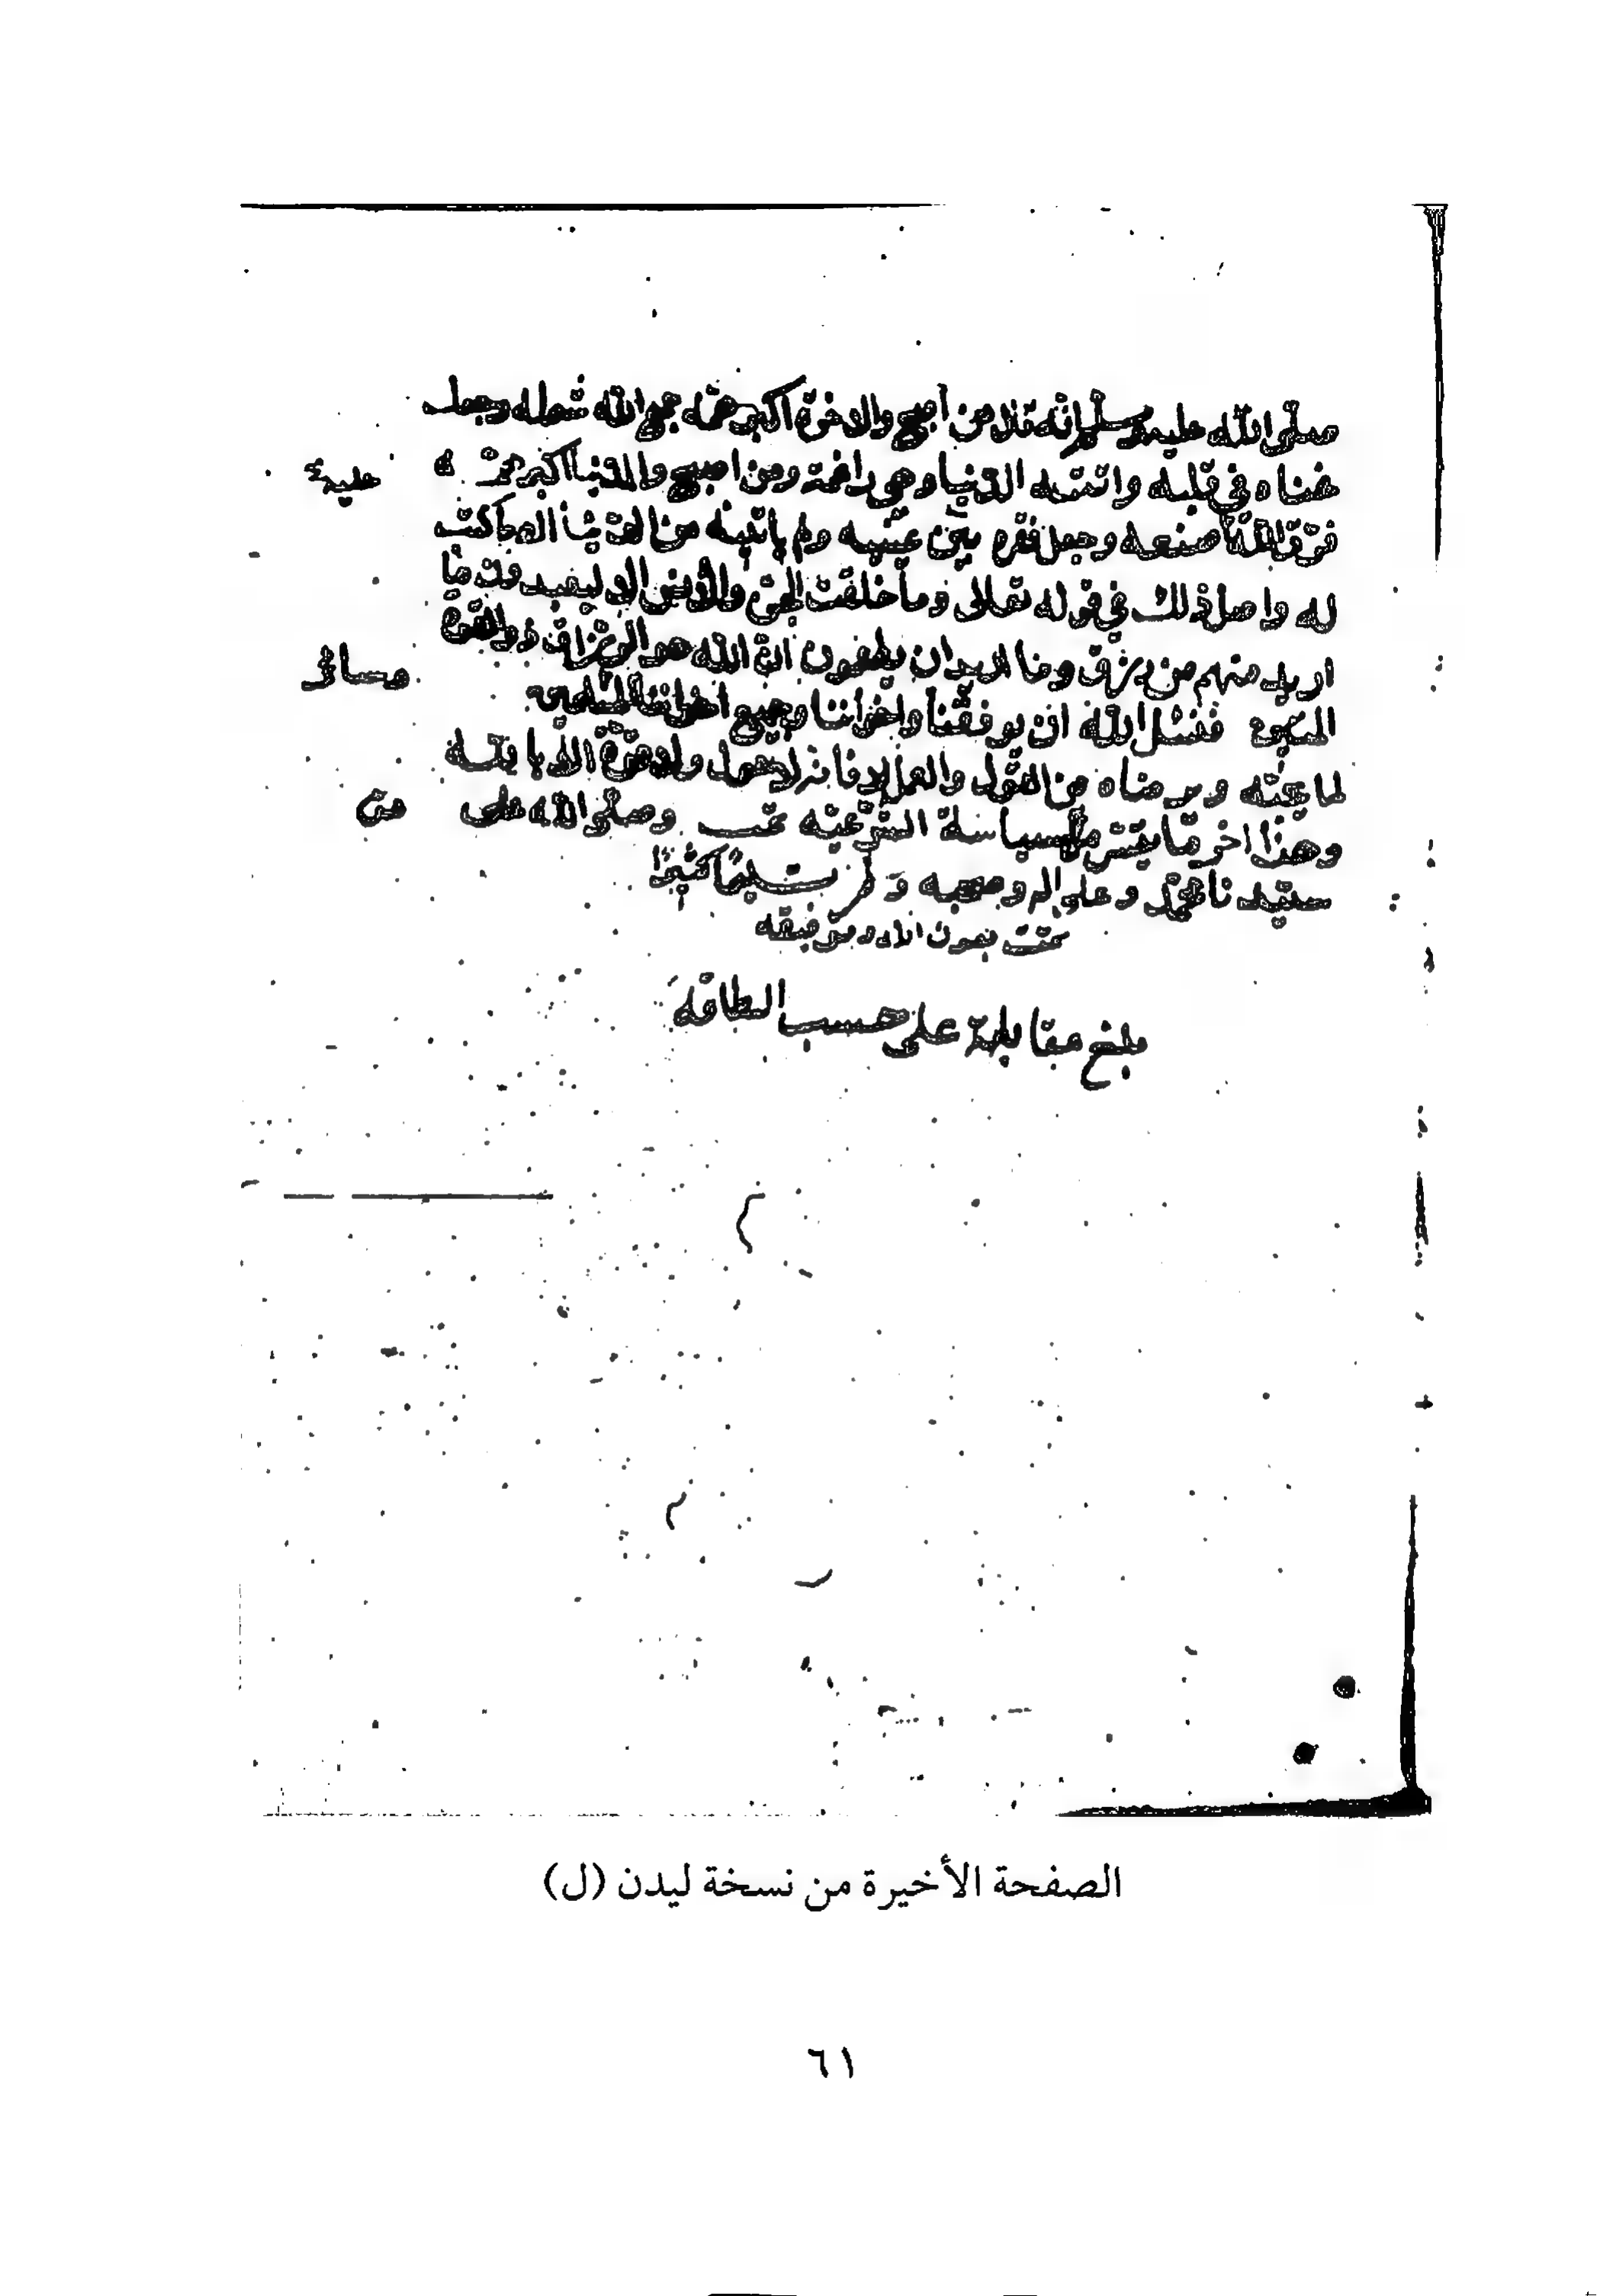 صلى الله عليه وسلم انه قال من اصبح والاخرة اكبر همه جمع الله شمله وجعل
غناه في قلبه واتته الدنيا وهي راغمة ومن اصبح والدنيا اكبر همه
عليه
فرق الله ضيعه وجعل فقره بين عينيه ولم ياتيه من الدنيا الا ما كتب
له واصل ذلك في قوله تعالى وما خلقت الجن والانس الا ليعبدون ما
اريد منهم من رزق وما اريد ان يطعمون ان الله هو الرزاق ذو القوة
وسائر
المتين فنسئل الله ان يوفقنا واخواننا وجميع اخواننا المسلمين
لما يحبه ويرضاه من القول والعمل فانه لا حول ولا قوة الا بالله
وهذا اخر ما تيسر من السياسة الشرعية تمت وصلى الله على
من
سيدنا محمد وعلى اله وصحبه وسلم تسليما كثيرا
تمت بعون الله وتوفيقه
بلغ مقابلة على حسب الطاقة
الصفحة الأخيرة من نسخة ليدن (ل)
٦١